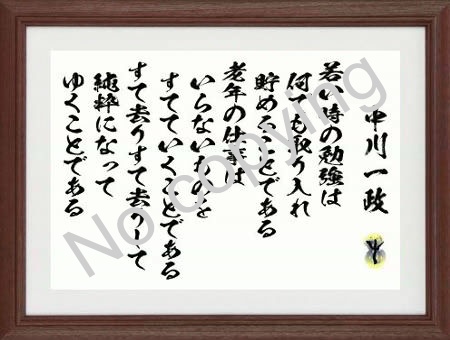 中川一政
若い時の勉強は
何でも取り入れ
貯めることである
老年の仕事は
いらないものを
すてていくことである
すて去りすて去りして
純粋になって
ゆくことである
No copying